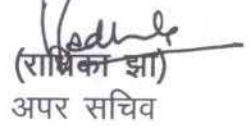 (राधिका झा)
अपर सचिव